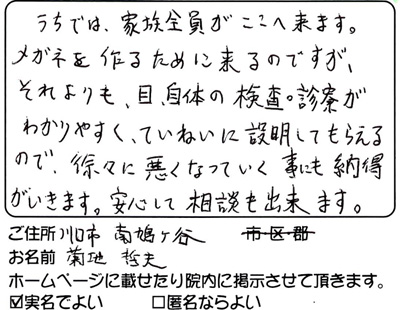 うちでは、家族全員がここへ来ます。
メガネを作るために来るのですが、
それよりも、目、自体の検査。診察が
わかりやすく、ていねいに説明してもらえる
ので、徐々に悪くなっていく事にも納得
がいきます。安心して相談も出来ます。
ご住所 川口市 南鳩ヶ谷 市・区・郡
お名前 菊地 哲夫
ホームページに載せたり院内に掲示させて頂きます。
☑実名でよい □匿名ならよい